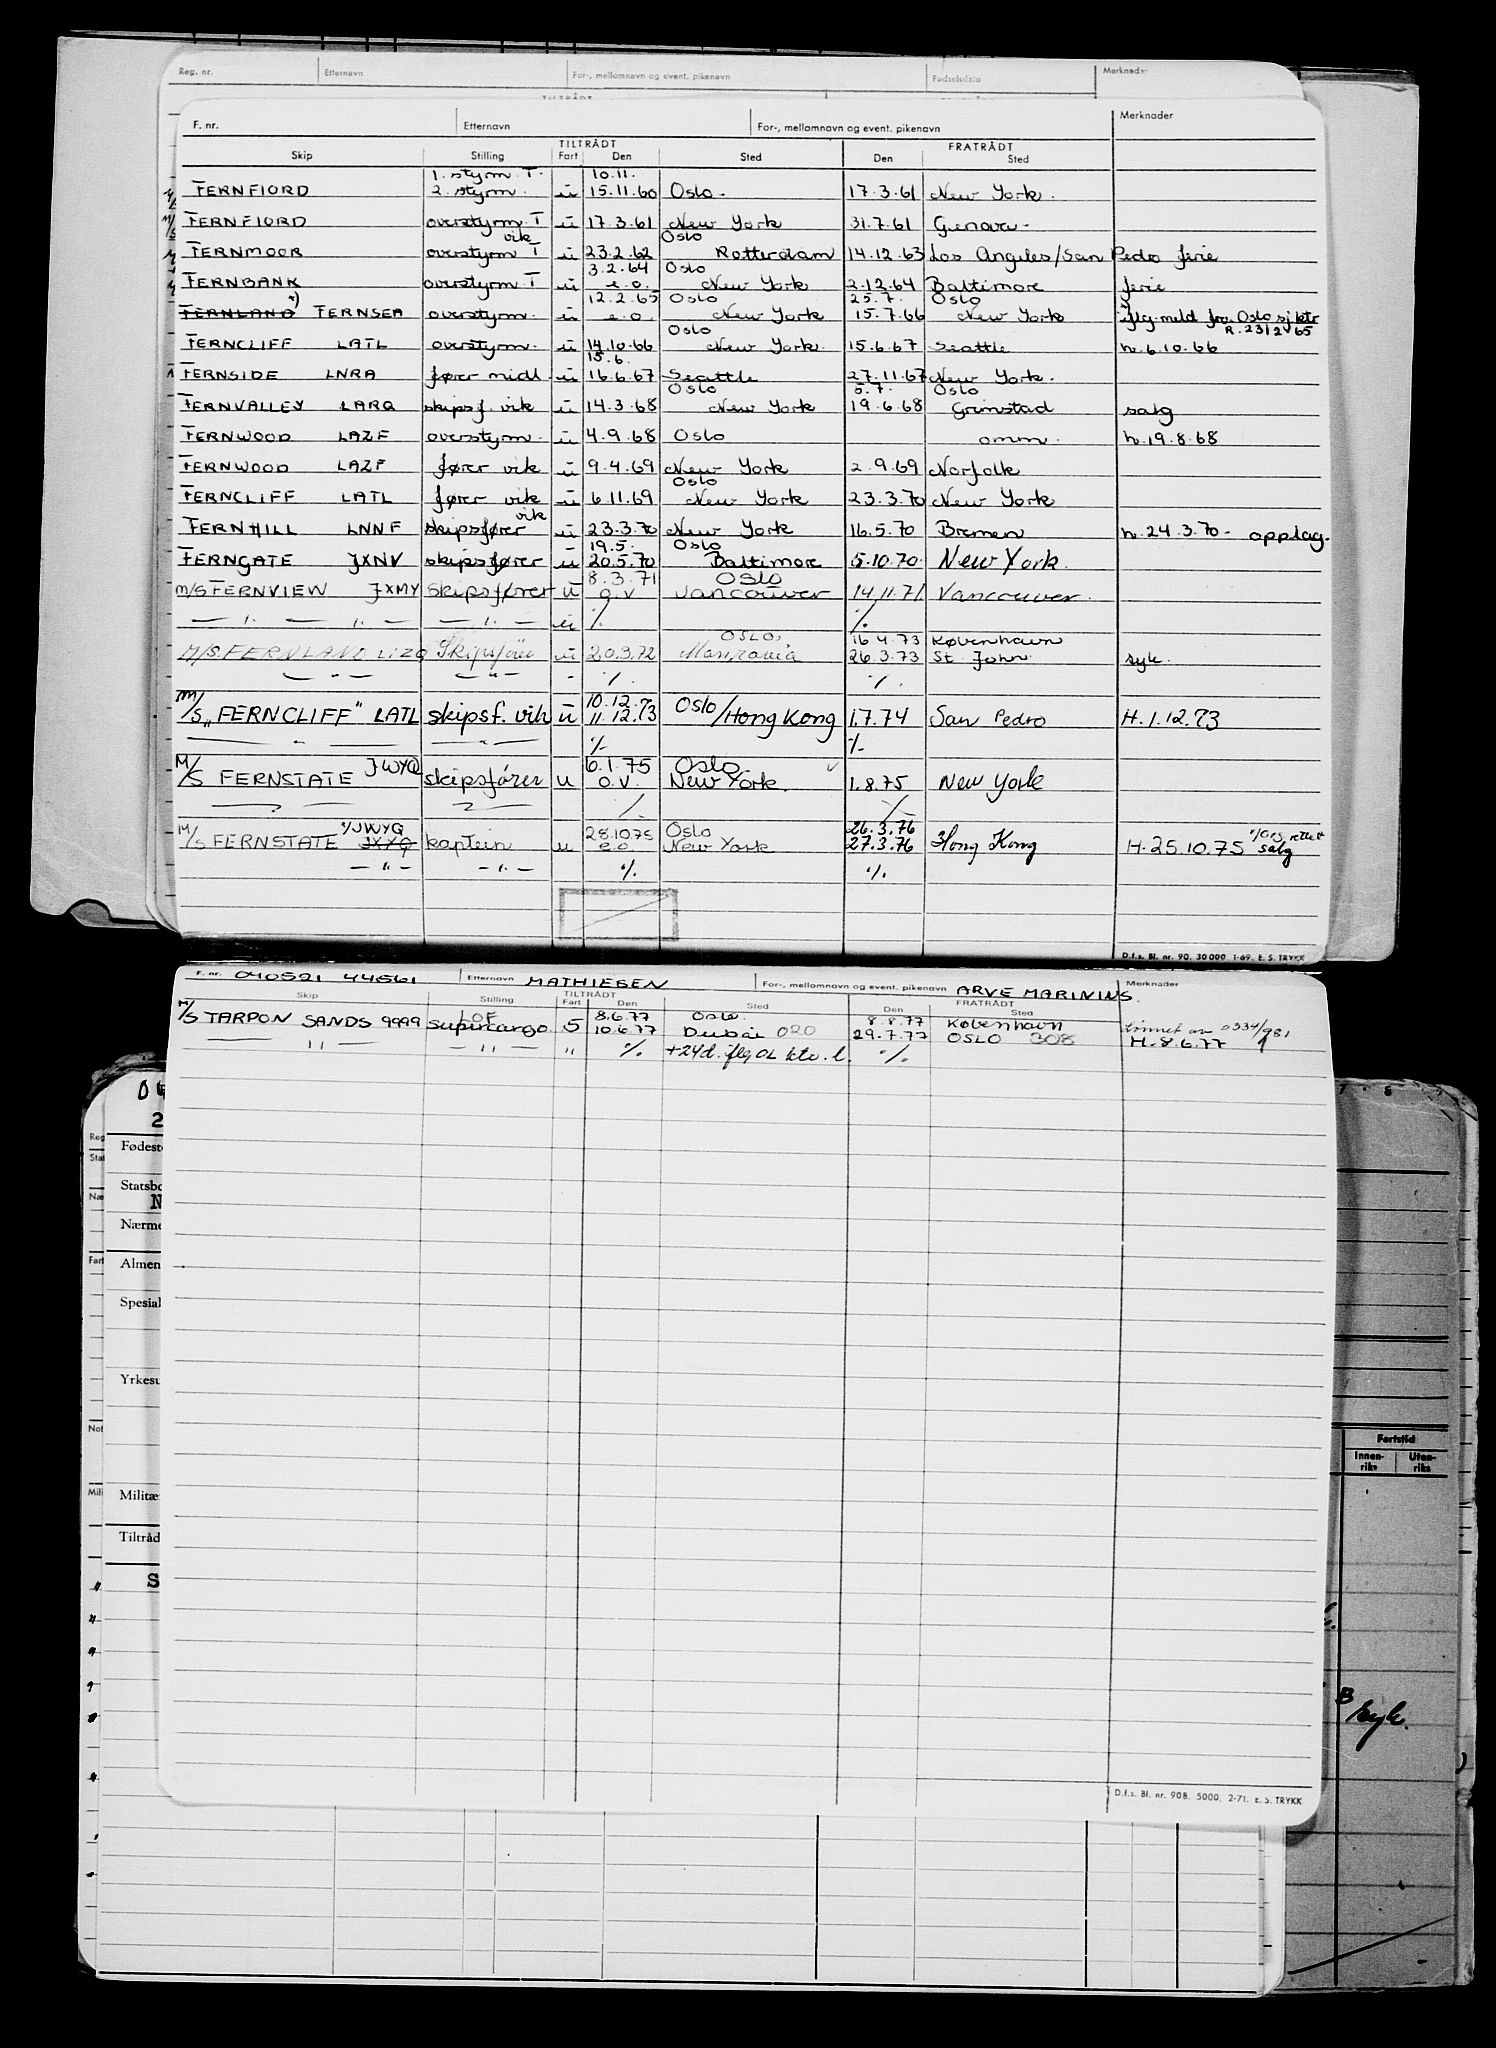 Reg. nr. Etternavn For-, mellomnavn og event. pikenavn Fødselsdato Merknader
TILTRÅDT
F. nr. Etternavn For-, mellomnavn og event. pikenavn Merknader
TILTRÅDT FRATRÅDT
Skip Stilling Fart Den Sted Den Sted
1. styrm. T. 10.11.
FERNFIORD 2. styrm. u 15.11.60 Oslo. 17.3.61 New York.
FERNFIORD overstyrm. T u 17.3.61 New York 31.7.61 Genova.
vik Oslo
FERNMOOR overstyrm T u 23.2.62 Rotterdam 14.12.63 Los Angeles/San Pedro ferie
3.2.64 Oslo
FERNBANK overstyrm T u e.o. New York 2.12.64 Baltimore ferie
12.2.65 Oslo 25.7. Oslo
FERNLAND FERNSEA overstyrm. u e.o. New York 15.7.66 New York iflg. meld fra Oslo sj.ktr
Oslo R. 23/2 65
FERNCLIFF LATL overstyrm. u 14.10.66 New York. 15.6.67 Seattle h. 6.10.66
15.6.
FERNSIDE LNRA fører midl u 16.6.67 Seattle 27.11.67 New York.
Oslo 5.7. Oslo
FERNVALLEY LARQ skipsf. vik u 14.3.68 New York 19.6.68 Grimstad salg
FERNWOOD LAZF overstyrm. u 4.9.68 Oslo omm. h. 19.8.68
FERNWOOD LAZF fører vik u 9.4.69 New York 2.9.69 Norfolk
Oslo
FERNCLIFF LATL fører vik u 6.11.69 New York 23.3.70 New York
vik
FERNHILL LNNF skipsfører u 23.3.70 New York 16.5.70 Bremen h. 24.3.70 - opplag.
19.5. Oslo
FERNGATE JXNV skipsfører u 20.5.70 Baltimore 5.10.70 New York.
8.3.71 OSLO
M/S FERNVIEW JXMY skipsfører u o.v Vancouver 14.11.71 Vancouver.
— " — " — — " — u % %
OSLO, 16.4.73 København
M/S. FERNLAND LIZQ Skipsfører u 20.3.72 Monrovia 26.3.73 St. John syk.
— " — — " — - % %
10.12.73
M/S "FERNCLIFF" LATL skipsf. vik u 11.12.73 Oslo/Hong Kong 1.7.74 San Pedro H. 1.12.73
— " — — " — % %
JWYQ 6.1.75 Oslo
M/S FERNSTATE skipsfører u o.v. New York. 1.8.75 New York
— " — — " — % %
JWYQ 28.10.75 Oslo 26.3.76
M/S FERNSTATE JXYQ kaptein u e.o. New York 27.3.76 Hong Kong H. 25.10.75 salg
— " — — " — % %
D.f.s. Bl. nr. 90. 30000. 1-69. E. S. TRYKK
F. nr. 040521 44561 Etternavn MATHIESEN For-, mellomnavn og event. pikenavn ARVE MARINIUS. Merknader
TILTRÅDT FRATRÅDT
Skip Stilling Fart Den Sted Den Sted
LOF 8.6.77 Oslo. 8.8.77 København
M/S TARPON SANDS 9999 supercargo 5 10.6.77 Dubai 020 29.7.77 OSLO 308 H. 8.6.77
— " — — " — " % +24d. iflg OL ktr. l. %
Fødeste
Statsbo
N
Nærme
Almen
Spesial
Yrkesu
Militæ
Tiltråd
S
Fartstid
Innen-riks Uten-riks
B
Syk.
D.f.s. Bl. nr. 90B. 5000. 2-71. E. S. TRYKK